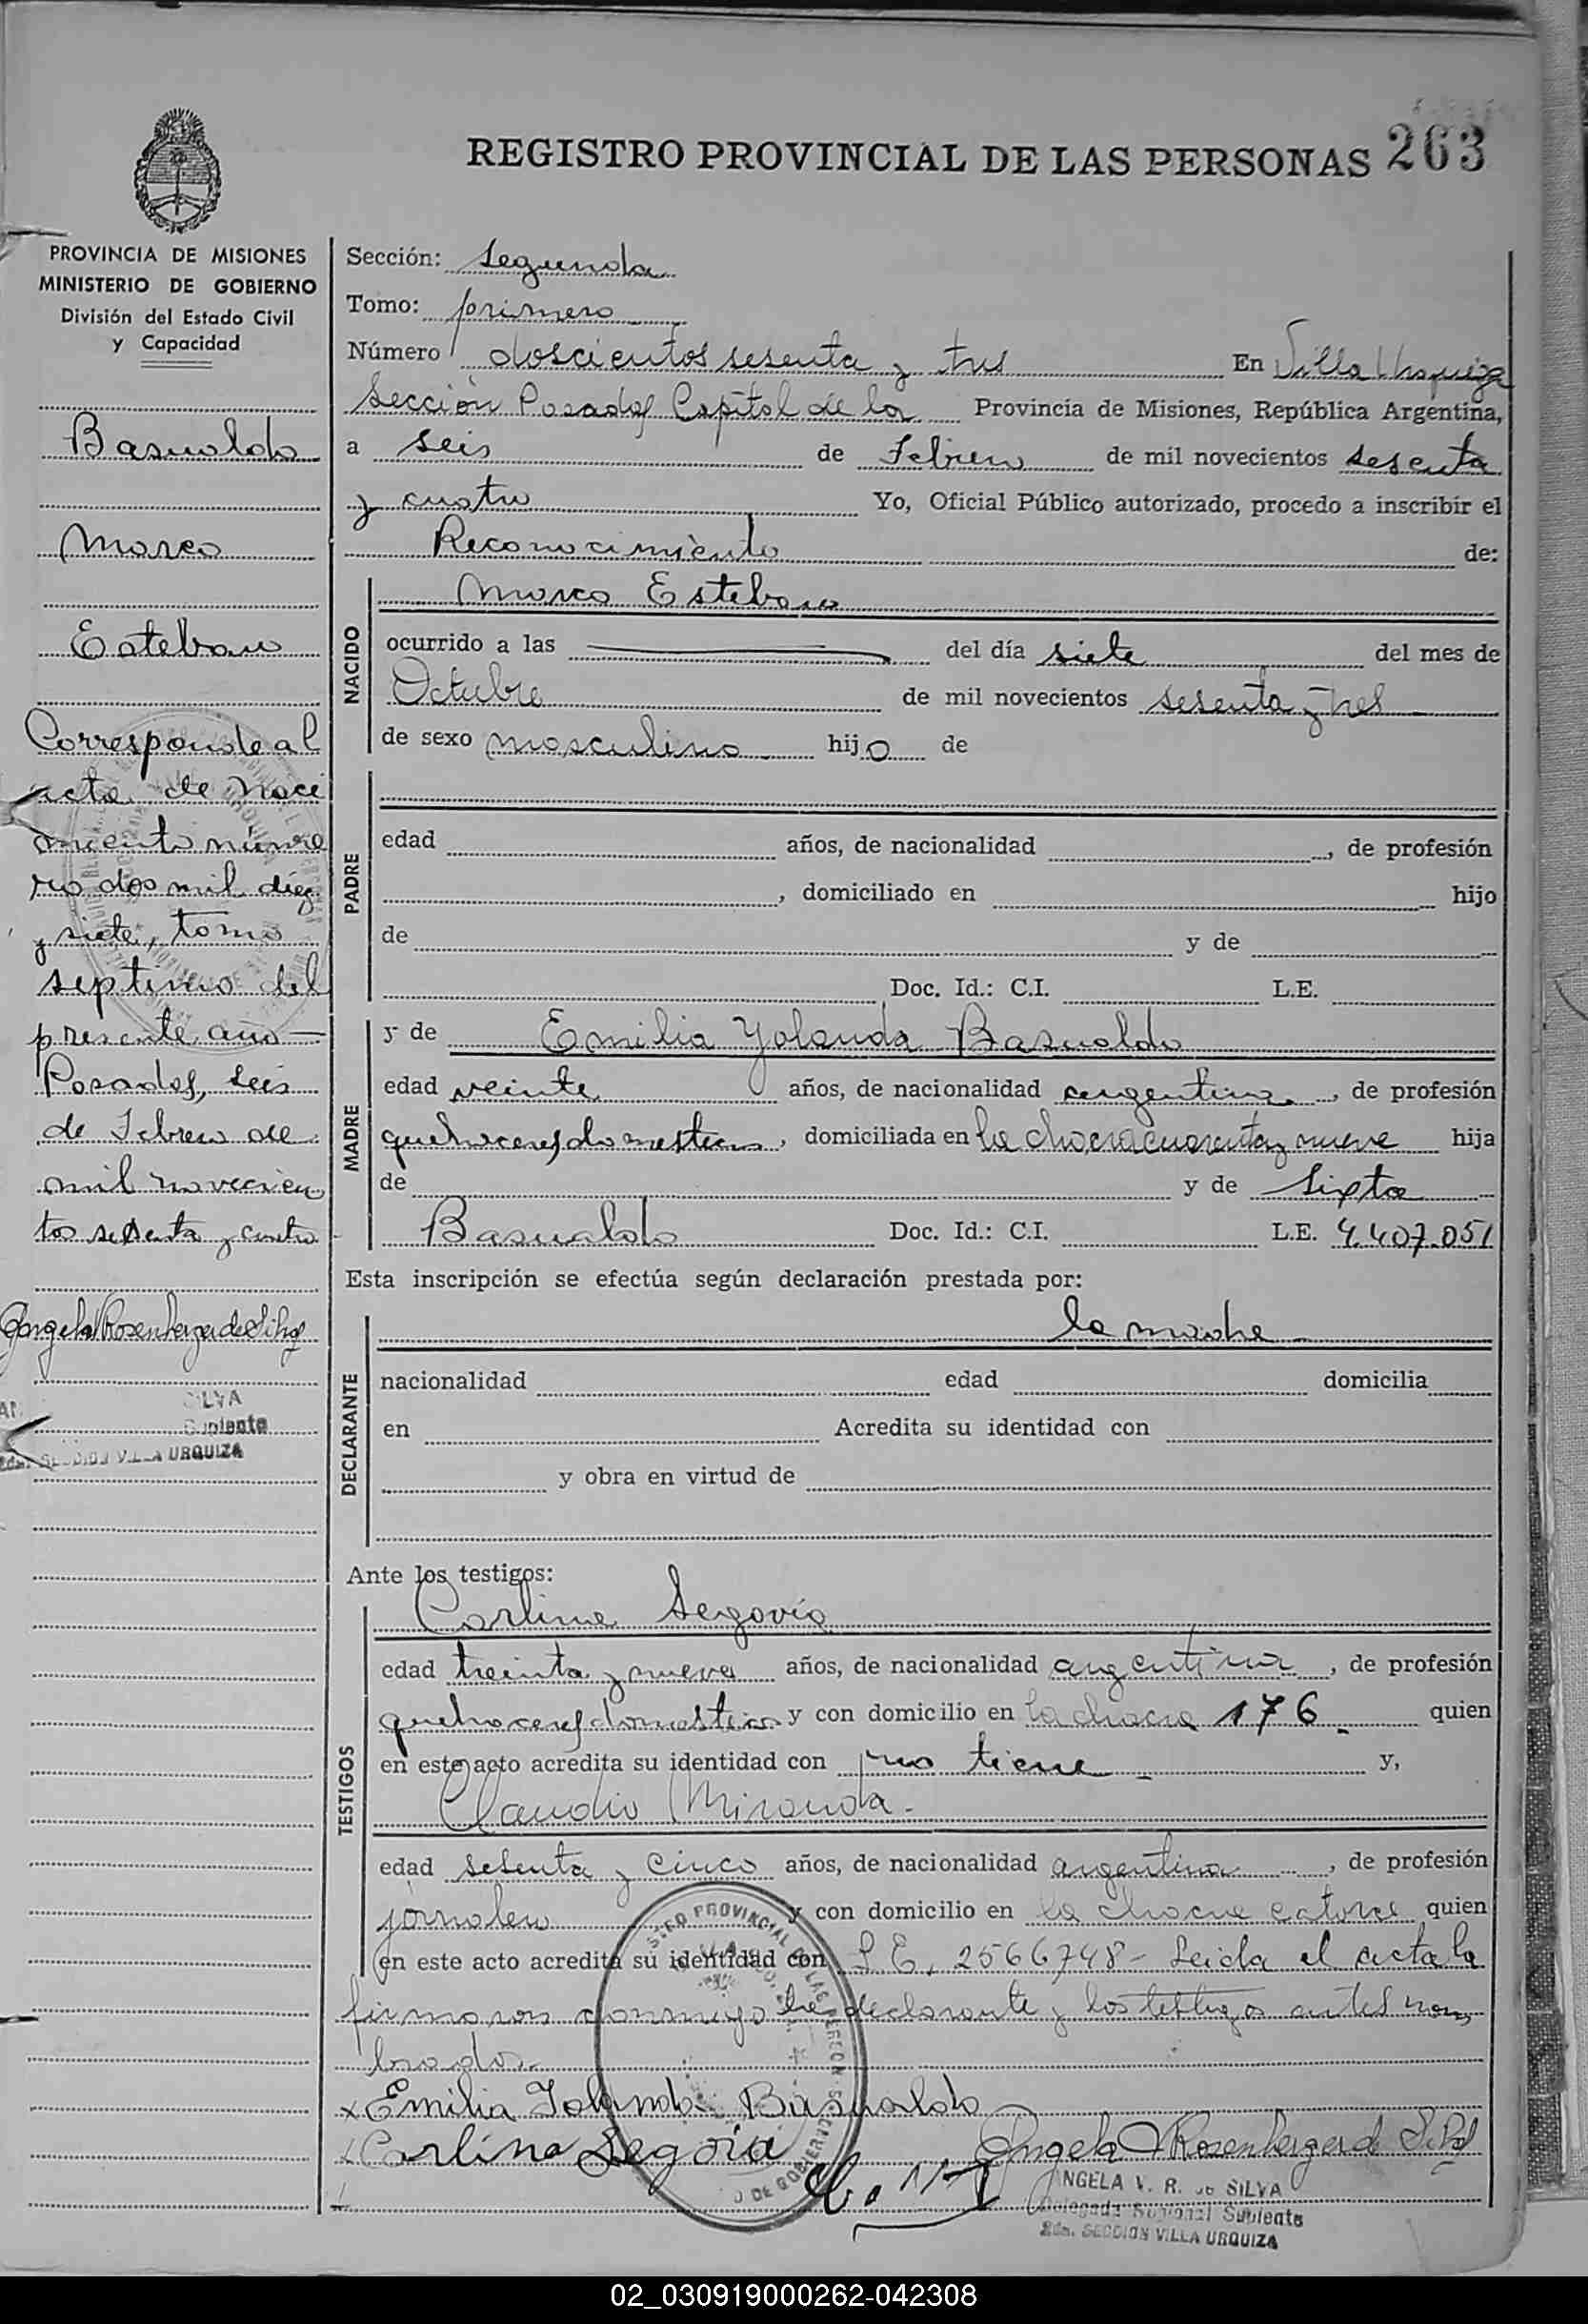 REGISTRO PROVINCIAL DE LAS PERSONAS 263
PROVINCIA DE MISIONES
MINISTERIO DE GOBIERNO
División del Estado Civil
y Capacidad
Basualdo
Marco
Esteban
Corresponde al
acta de naci
miento núme
ro dos mil diez
y siete, tomo
septimo del
presente año
Posadas, seis
de Febrero de
mil novecien
tos sesenta y cuatro
Angela Rosenberger de Silva
SILVA
Suplente
SECCION VILLA URQUIZA
Sección: Segunda
Tomo: primero
Número doscientos sesenta y tres En Villa Urquiza
Sección Posadas Capital de la Provincia de Misiones, República Argentina,
a seis de Febrero de mil novecientos sesenta
y cuatro Yo, Oficial Público autorizado, procedo a inscribir el
Reconocimiento de:
NACIDO
Marco Esteban
ocurrido a las del día siete del mes de
Octubre de mil novecientos sesenta y tres
de sexo masculino hijo de
PADRE
edad años, de nacionalidad , de profesión
, domiciliado en hijo
de y de
Doc. Id.: C.I. L.E.
MADRE
y de Emilia Yolanda Basualdo
edad veinte años, de nacionalidad argentina, de profesión
quehaceres domesticos, domiciliada en la chacra cuarenta y nueve hija
de y de Sixta
Basualdo Doc. Id.: C.I. L.E. 4.407.051
Esta inscripción se efectúa según declaración prestada por:
DECLARANTE
la madre
nacionalidad edad domicilia
en Acredita su identidad con
y obra en virtud de
Ante los testigos:
TESTIGOS
Carlina Segovia
edad treinta y nueve años, de nacionalidad argentina, de profesión
quehaceres domesticos y con domicilio en la chacra 176 quien
en este acto acredita su identidad con no tiene y,
Claudio Miranda
edad sesenta y cinco años, de nacionalidad argentina, de profesión
jornalero y con domicilio en la chacra catorce quien
en este acto acredita su identidad con L.E. 2566748 - Leida el acta la
firmaron conmigo la declarante y los testigos antes nom
brados
x Emilia Yolanda Basualdo
x Carlina Segovia Angela V Rosenberger de Silva
ANGELA V. R. de SILVA
Delegada Seccional Suplente
2da. SECCION VILLA URQUIZA
02_030919000262-042308